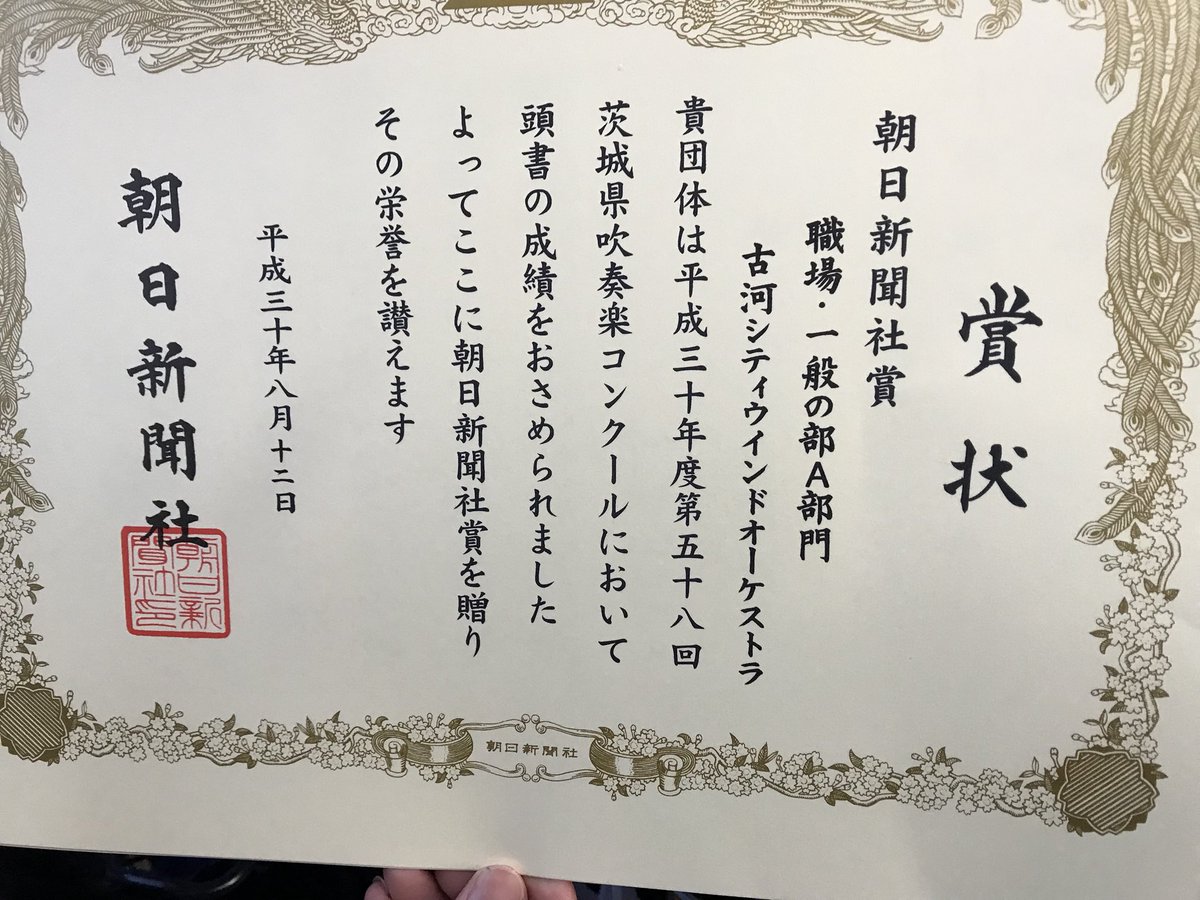 賞状
朝日新聞社賞
職場・一般の部A部門
古河シティウインドオーケストラ
貴団体は平成三十年度第五十八回
茨城県吹奏楽コンクールにおいて
頭書の成績をおさめられました
よってここに朝日新聞社賞を贈り
その栄誉を讃えます
平成三十年八月十二日
朝日新聞社
朝日新聞社